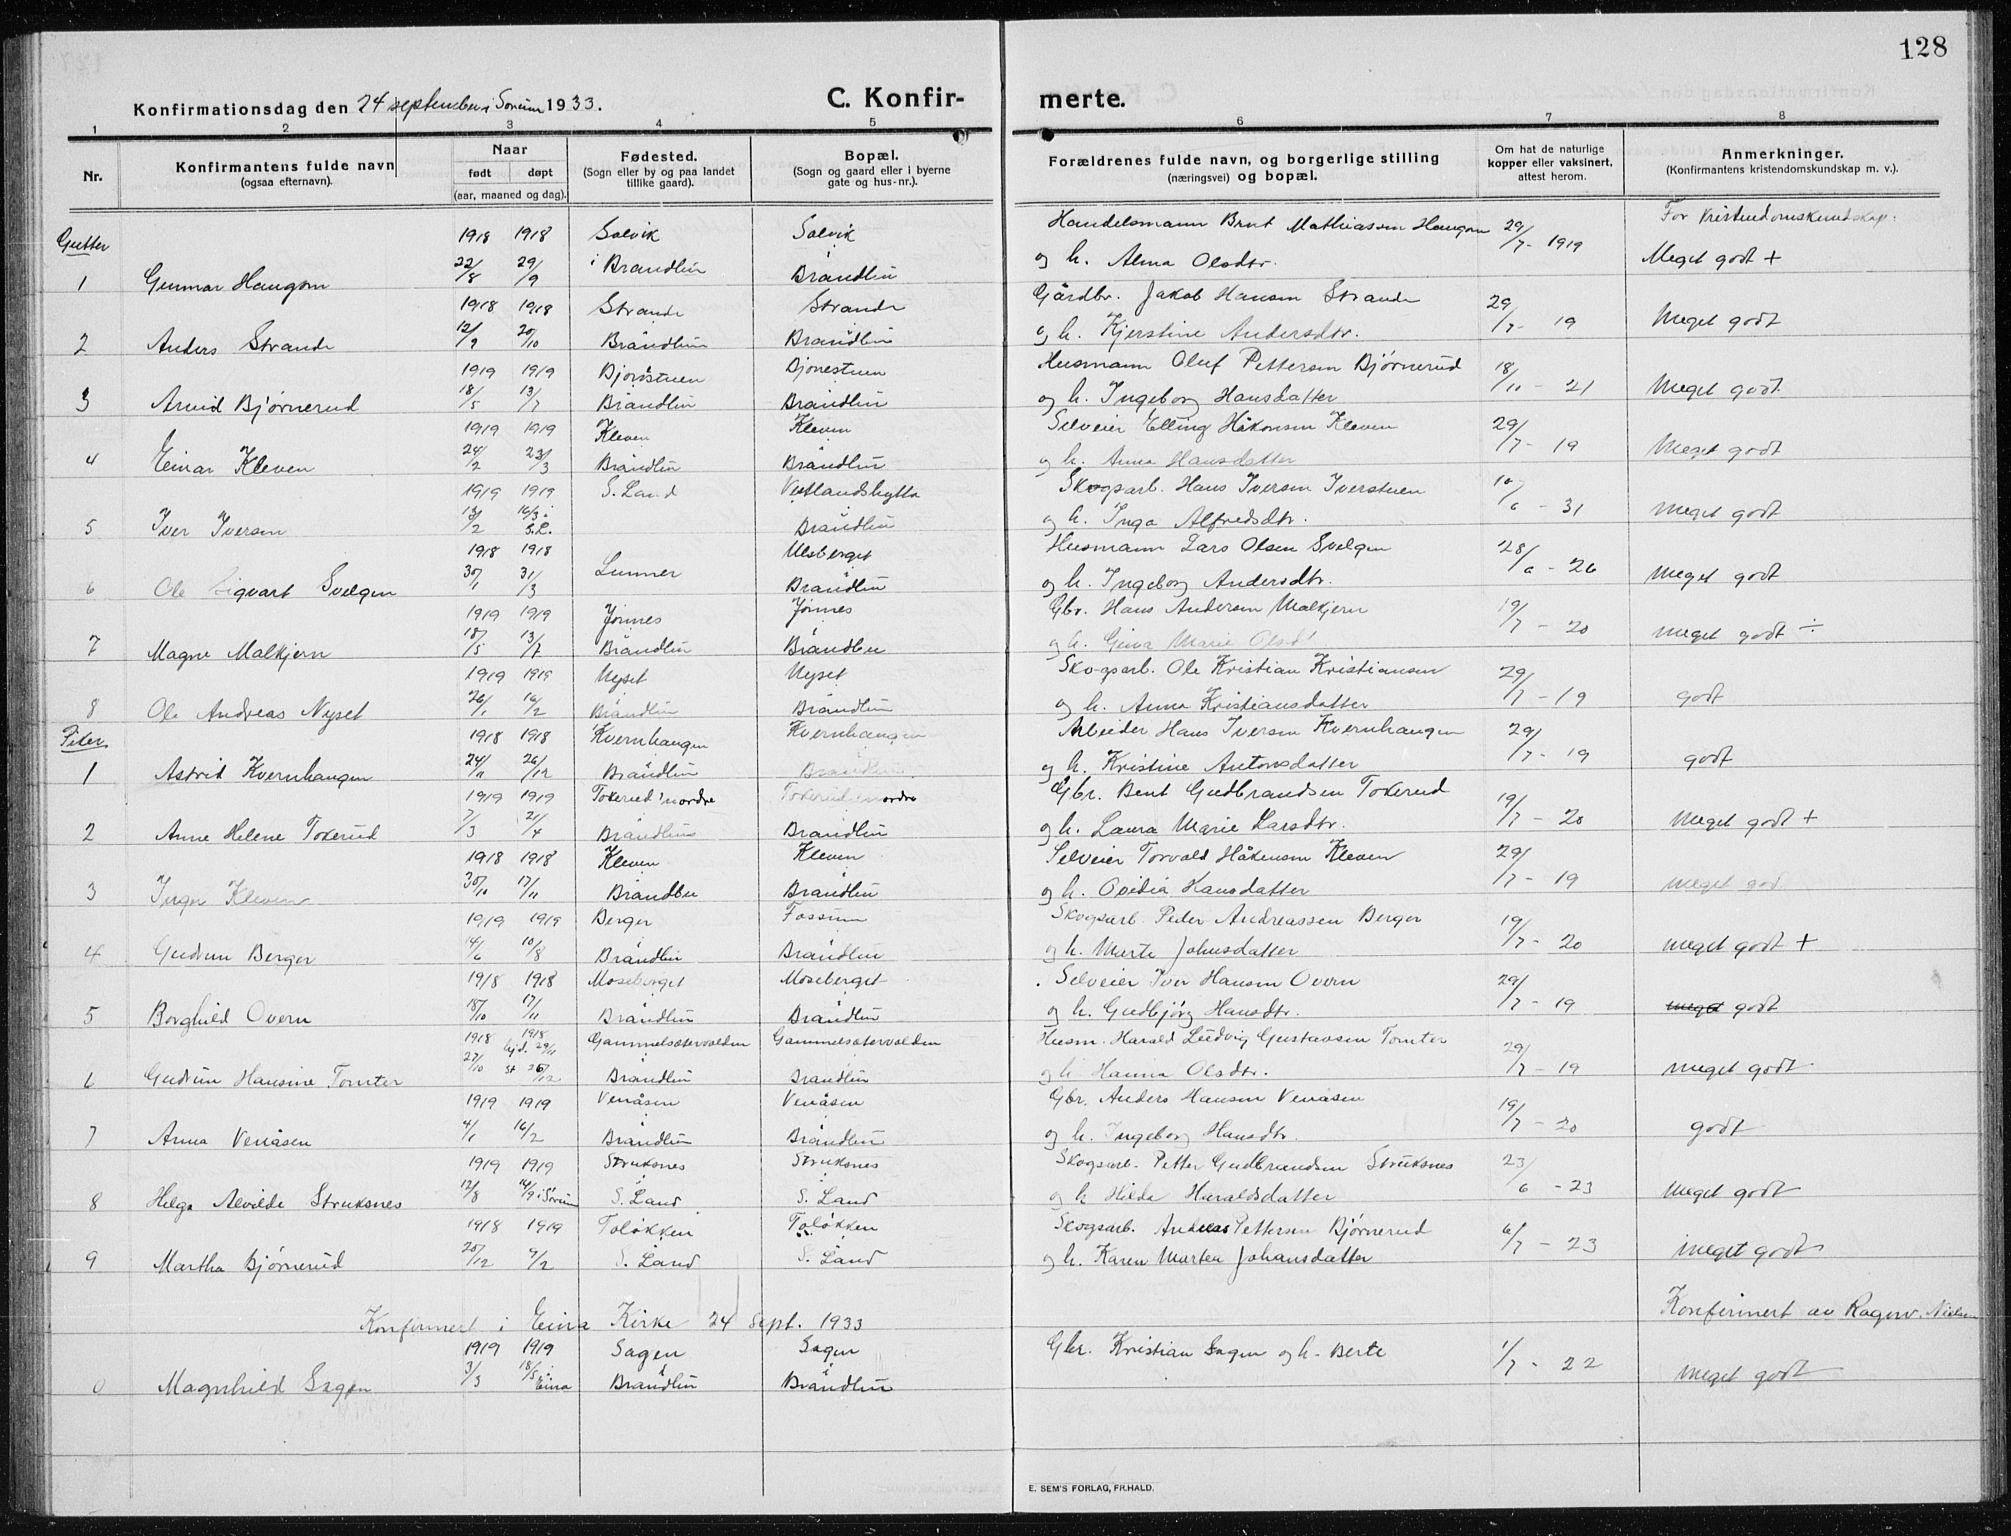 128
Konfirmationsdag den 24 september i Sørum 1933. C. Konfir- merte.
1 2 3 4 5 6 7 8
Nr. Konfirmantens fulde navn (ogsaa efternavn). Naar født døpt (aar, maaned og dag). Fødested. (Sogn eller by og paa landet tillike gaard). Bopæl. (Sogn og gaard eller i byerne gate og hus-nr.). Forældrenes fulde navn, og borgerlige stilling (næringsvei) og bopæl. Om hat de naturlige kopper eller vaksinert, attest herom. Anmerkninger. (Konfirmantens kristendomskundskap m. v.).
Gutter 1918 1918 Solvik Solvik Handelsmann Brnt Mathiassen Haugom 29/7 - 1919 For Kristendomskundskap:
1 Gunnar Haugom 22/8 29/9 i Brandbu Brandbu og h. Alma Olsdtr. Meget godt +
1918 1918 Strande Strande Gårdbr. Jakob Hansen Strande 29/7 - 19
2 Anders Strande 12/9 20/10 Brandbu Brandbu og h. Kjerstine Andersdtr. Meget godt
1919 1919 Bjonestuen Husmann Oluf Pettersen Bjørnerud 18/11 - 21
3 Arvid Bjørnerud 18/5 13/7 Brandbu Brandbu og h. Ingeborg Hansdatter Meget godt
1919 1919 Kleven Kleven Selveier Elling Håkonsen Kleven 29/7 - 19
4 Einar Kleven 24/2 23/3 Brandbu Brandbu og h. Anna Hansdatter Meget godt
1919 1919 S. Land Vestlandshytta Skogsarb. Hans Iversen Iverstuen 10/6 - 31
5 Iver Iversen 13/2 16/3 i S.L. Brandbu og h. Inga Alfredsdtr. Meget godt
1918 1918 Lunner Ulsberget Husmann Lars Olsen Svelgen 28/6 - 26
6 Ole Sigvart Svelgen 30/1 31/3 Brandbu og h. Ingeborg Andersdtr. Meget godt
1919 1919 Jønnes Jønnes Gbr. Hans Andersen Malkjern 19/7 - 20
7 Magne Malkjern 18/5 13/7 Brandbu Brandbu og h. Gina Marie Olsdt Meget godt ÷
1919 1919 Nyset Nyset Skogsarb. Ole Kristian Kristiansen 29/7 - 19
8 Ole Andreas Nyset 26/1 16/2 Brandbu Brandbu og h. Anna Kristiansdatter godt
Piker 1918 1918 Kvernhaugen Kvernhaugen Arbeider Hans Iversen Kvernhaugen 29/7 - 19
1 Astrid Kvernhaugen 24/11 26/12 Brandbu Brandbu og h. Kristine Antonsdatter godt
1919 1919 Tokerud nordre Tokerud nordre Gbr. Bent Gudbrandsen Tokerud 19/7 - 20
2 Anne Helene Tokerud 7/3 21/4 Brandbu Brandbu og h. Laura Marie Larsdtr. Meget godt +
1918 1918 Kleven Kleven Selveier Torvald Håkensen Kleven 29/7 - 19
3 Inger Kleven 30/10 17/11 Brandbu Brandbu og h. Ovidia Hansdatter meget god
1919 1919 Berger Fossum Skogsarb. Peder Andreassen Berger 19/7 - 20
4 Gudrun Berger 14/6 10/8 Brandbu Brandbu og h. Marte Johnsdatter meget godt +
1918 1918 Moseberget Moseberget Selveier Iver Hansen Overn 29/7 - 19
5 Borghild Overn 18/10 17/11 Brandbu Brandbu og h. Gudbjørg Hansdtr. meget godt
1918 1918 Gammelsætervolden Gammelsætervolden Husm. Harald Ludvig Gustavsen Tomter 29/7 - 19
6 Gudrun Hansine Tomter 27/10 hjd. 29/11 st 26/12 Brandbu Brandbu og h Hanna Olsdtr. meget godt
1919 1919 Venåsen Venåsen Gbr. Anders Hansen Venåsen 19/7 - 20
7 Anna Venåsen 4/1 16/2 Brandbu Brandbu og h. Ingeborg Hansdtr. godt
1919 1919 Struksnes Struksnes Skogsarb. Petter Gudbrandsen Struksnes 23/6 - 23
8 Helga Alvilde Struksnes 12/8 14/9 i Sørum S. Land S. Land og h Hilda Haraldsdatter meget godt
1918 1919 Toløkken Toløkken Skogsarb. Andreas Pettersen Bjørnerud 6/7 - 23
9 Martha Bjørnerud 20/12 9/2 S. Land S. Land og h. Karen Martea Johansdatter meget godt
Konfirmert i Eina Kirke 24 sept. 1933 Konfirmert av Ragnv. Nielsen
1919 1919 Sagen Sagen Gbr. Kristian Sagen og h. Berte 1/7 - 22
0 Magnhild Sagen 3/3 18/5 i Eina Brandbu Brandbu meget godt
E. SEM'S FORLAG, FR.HALD.